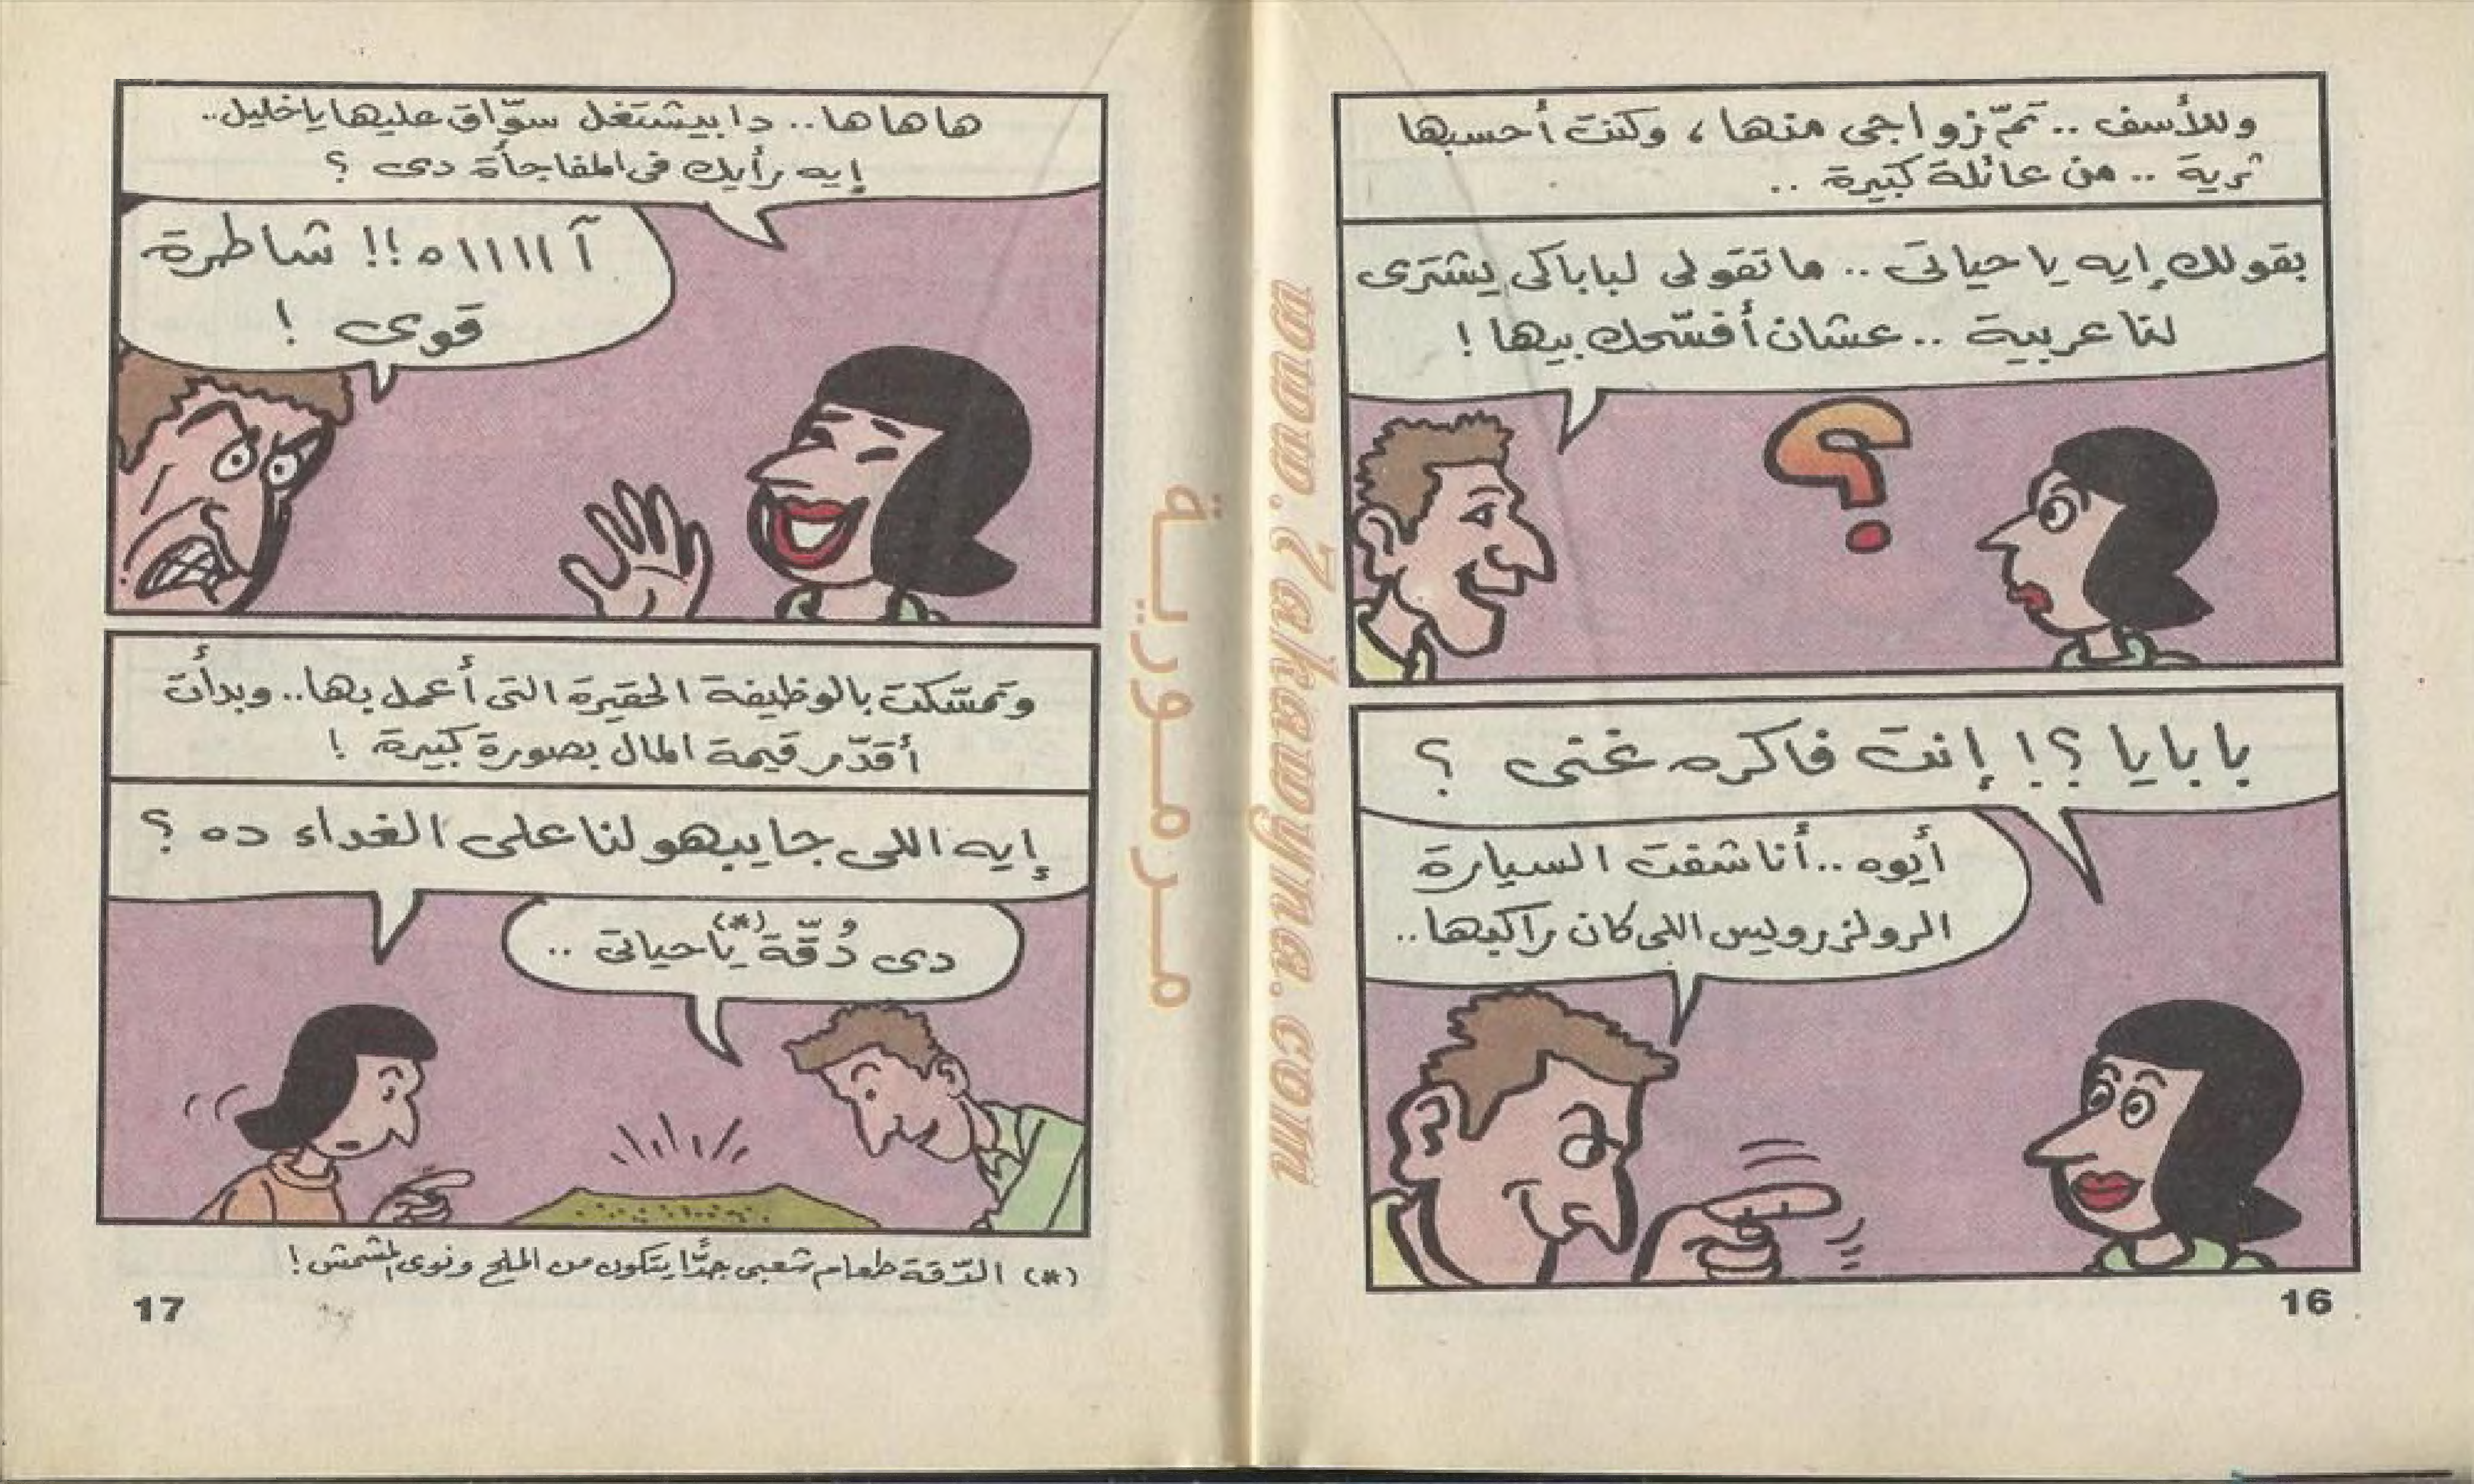 وللأسف .. تمّ زواجى منها ، وكنت أحسبها
ثرية .. من عائلة كبيرة ..
بقولك إيه يا حياتى .. ما تقولى لباباكى يشترى
لنا عربية .. عشان أفسّحك بيها !
بابايا ؟! إنت فاكره غنى ؟
أيوه .. أنا شفت السيارة
الرولز رويس اللى كان راكبها ..
16
ها ها ها .. دا بيشتغل سوّاق عليها يا خليل ..
إيه رأيك فى المفاجأة دى ؟
آ ااااه !! شاطرة
قوى !
وتمسّكت بالوظيفة الحقيرة التى أعمل بها .. وبدأت
أقدّر قيمة المال بصورة كبيرة !
إيه اللى جايبهولنا على الغداء ده ؟
دى دُقّة (*) يا حياتى ..
(*) الدّقة طعام شعبى جدًّا يتكون من الملح ونوى المشمش !
17
مرمورية
www.Zakawyna.com